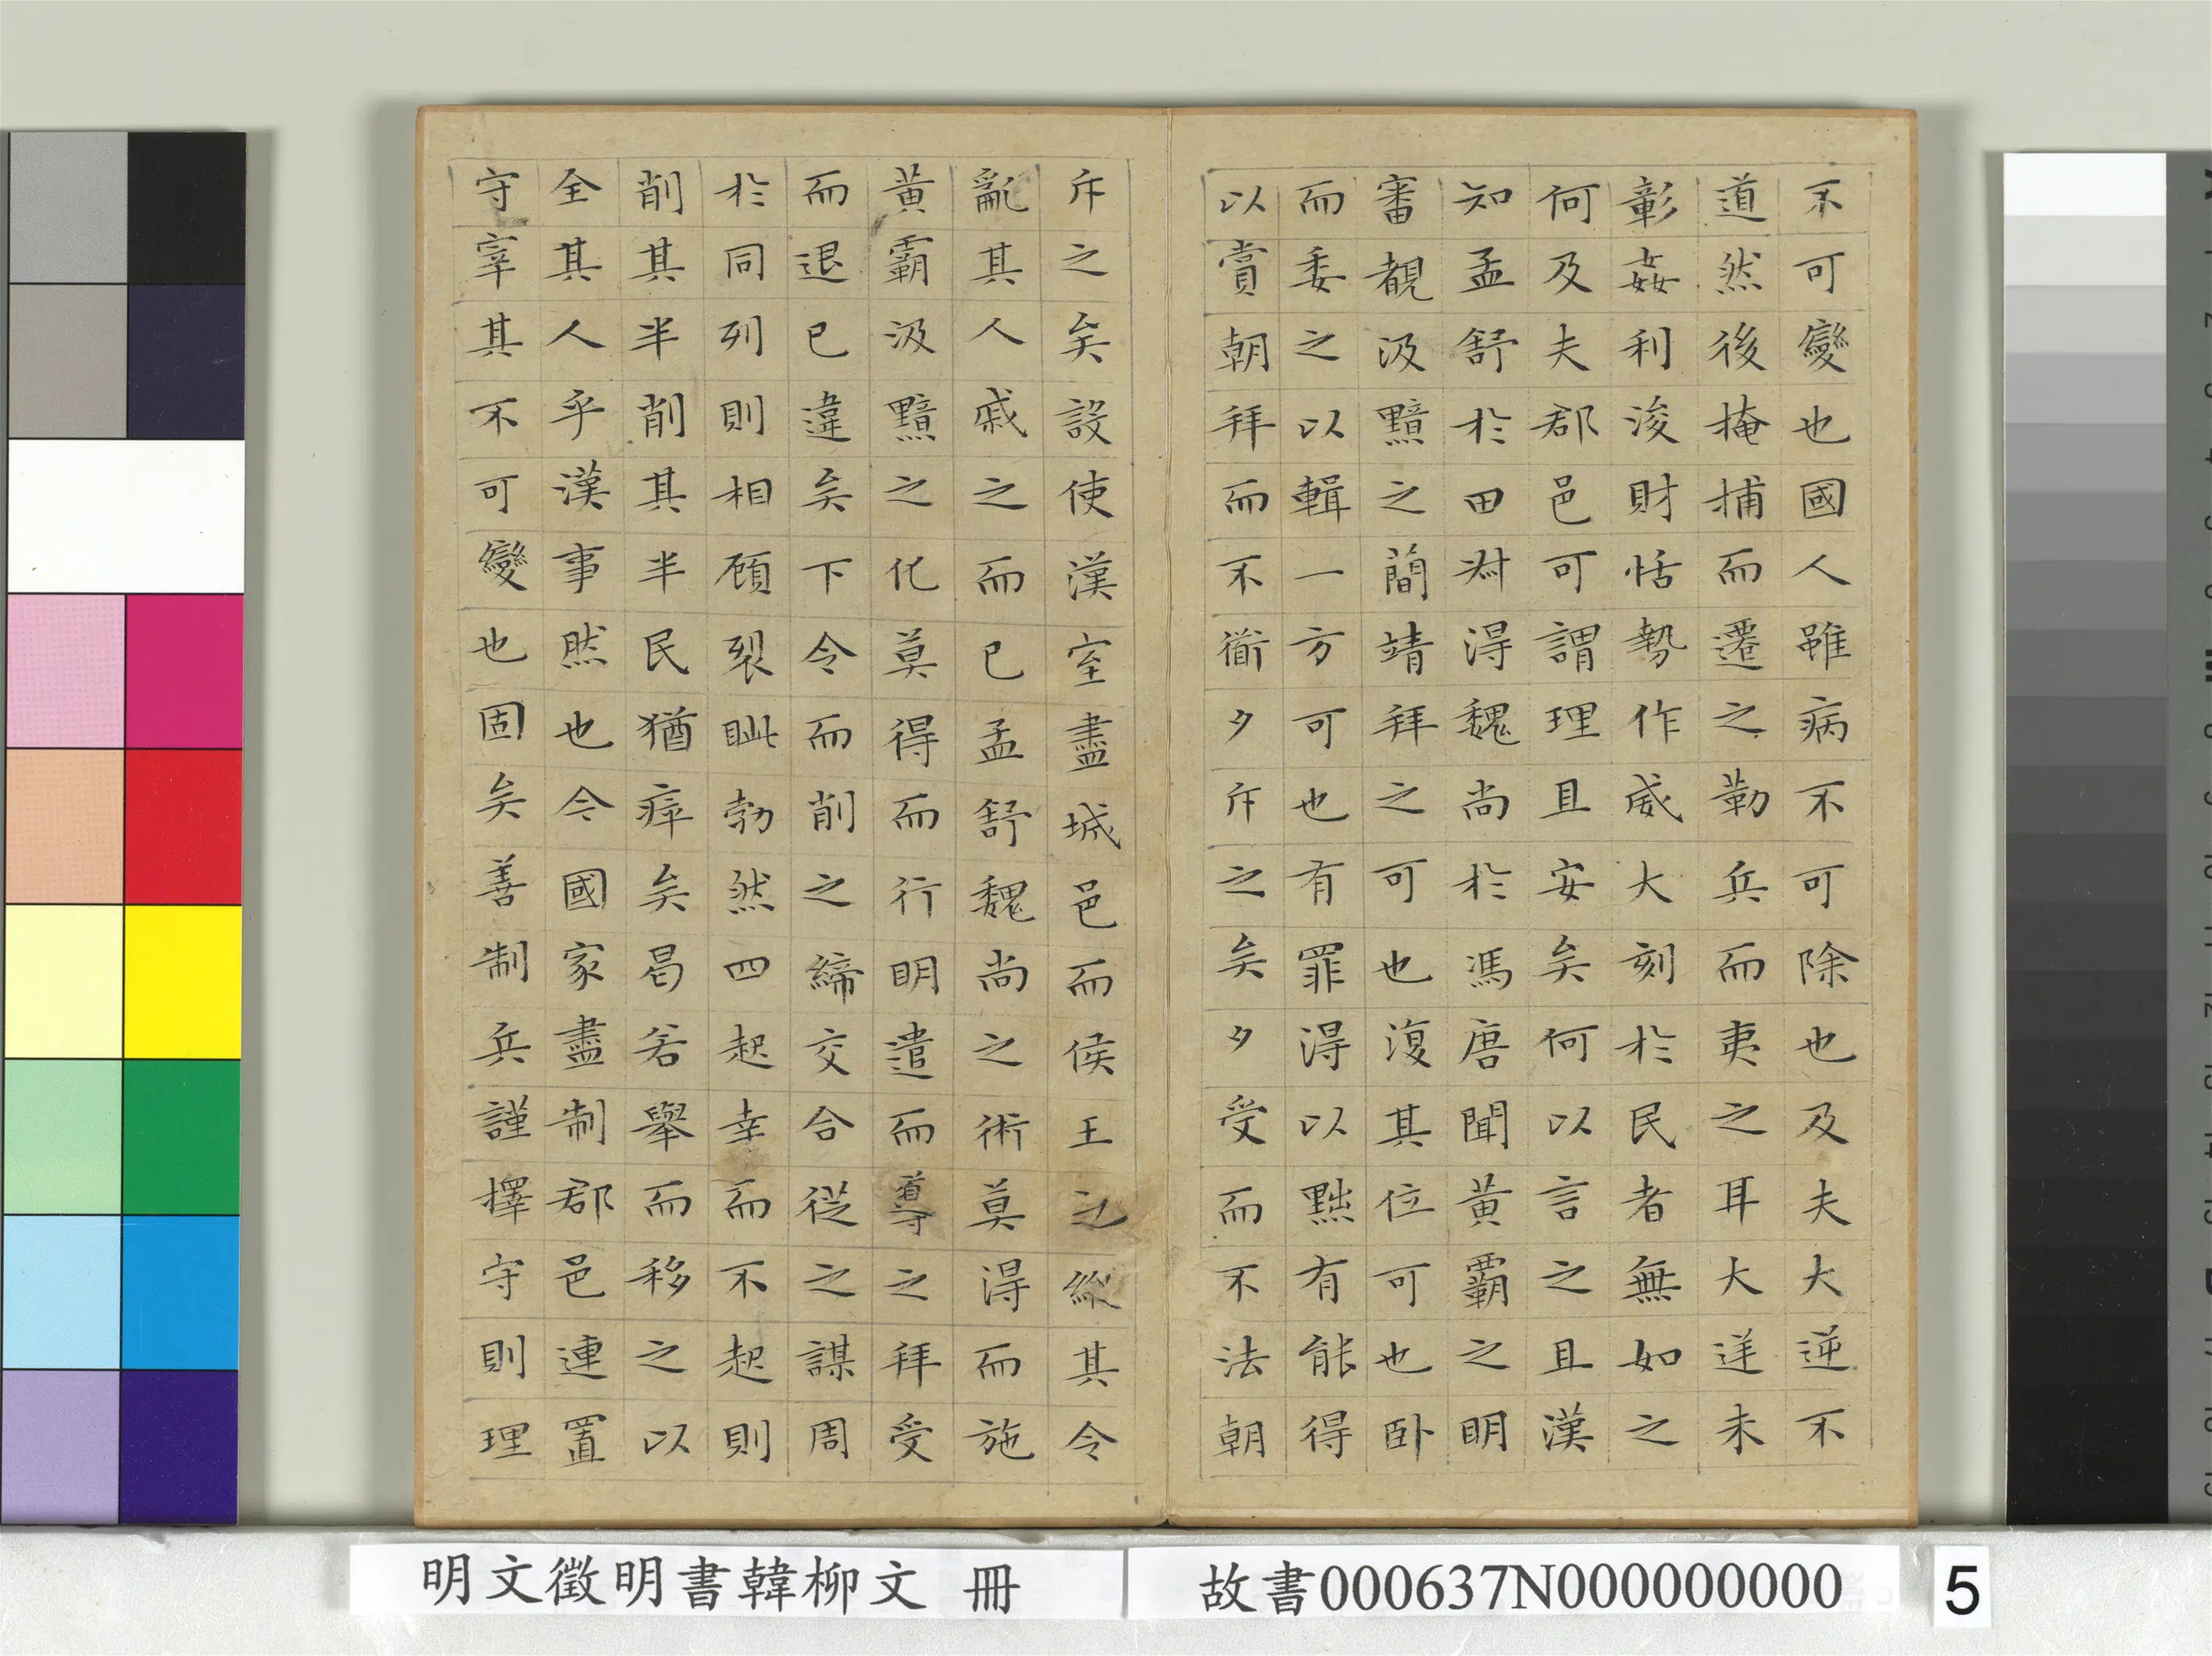 不可變也國人雖病不可除也及夫大逆不
道然後掩捕而遷之勒兵而夷之耳大逆未
彰姦利浚財恬勢作威大刻於民者無如之
何及夫郡邑可謂理且安矣何以言之且漢
知孟舒於田叔得魏尚於馮唐聞黃霸之明
審覩汲黯之簡靖拜之可也復其位可也卧
而委之以輯一方可也有罪得以黜有能得
以賞朝拜而不道夕斥之矣夕受而不法朝
斥之矣設使漢室盡城邑而侯王之縱其令
亂其人戚之而已孟舒魏尚之術莫得而施
黃霸汲黯之化莫得而行明遣而導之拜受
而退已違矣下令而削之締交合從之謀周
於同列則相顧裂眦勃然四起幸而不起則
削其半削其半民猶瘁矣曷若舉而移之以
全其人乎漢事然也今國家盡制郡邑連置
守宰其不可變也固矣善制兵謹擇守則理
明文徵明書韓柳文 冊
故書000637N000000000
5